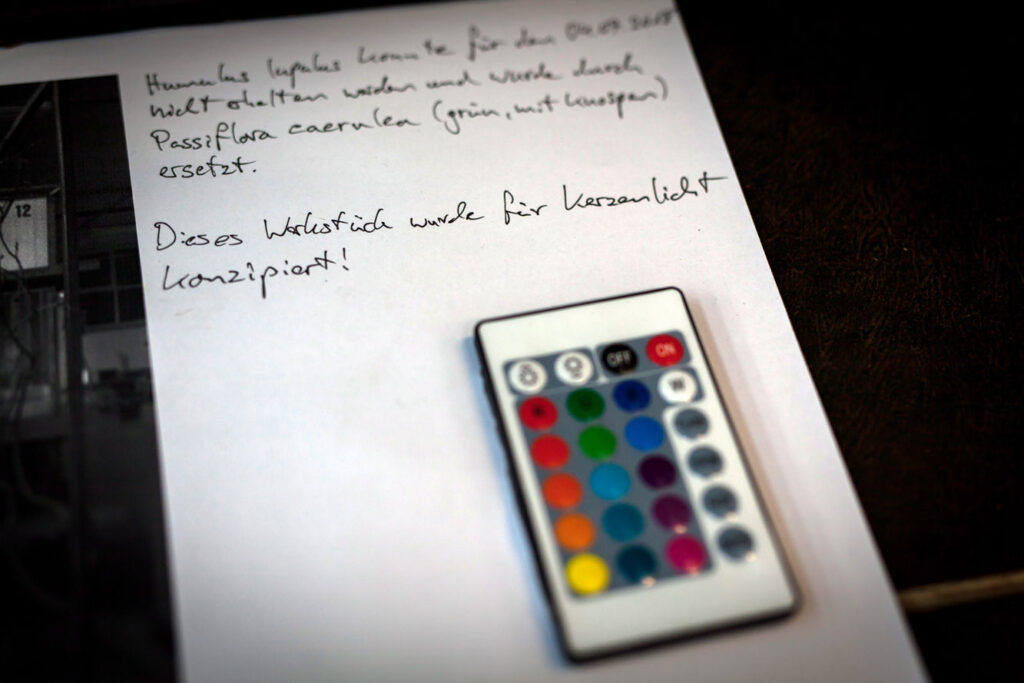 Humulus lupulus konnte für den 04.07.2015
nicht erhalten werden und wurde durch
Passiflora caerulea (grün, mit Knospen)
ersetzt.
Dieses Werkstück wurde für Kerzenlicht
konzipiert!
12
OFF
ON
R
G
B
W